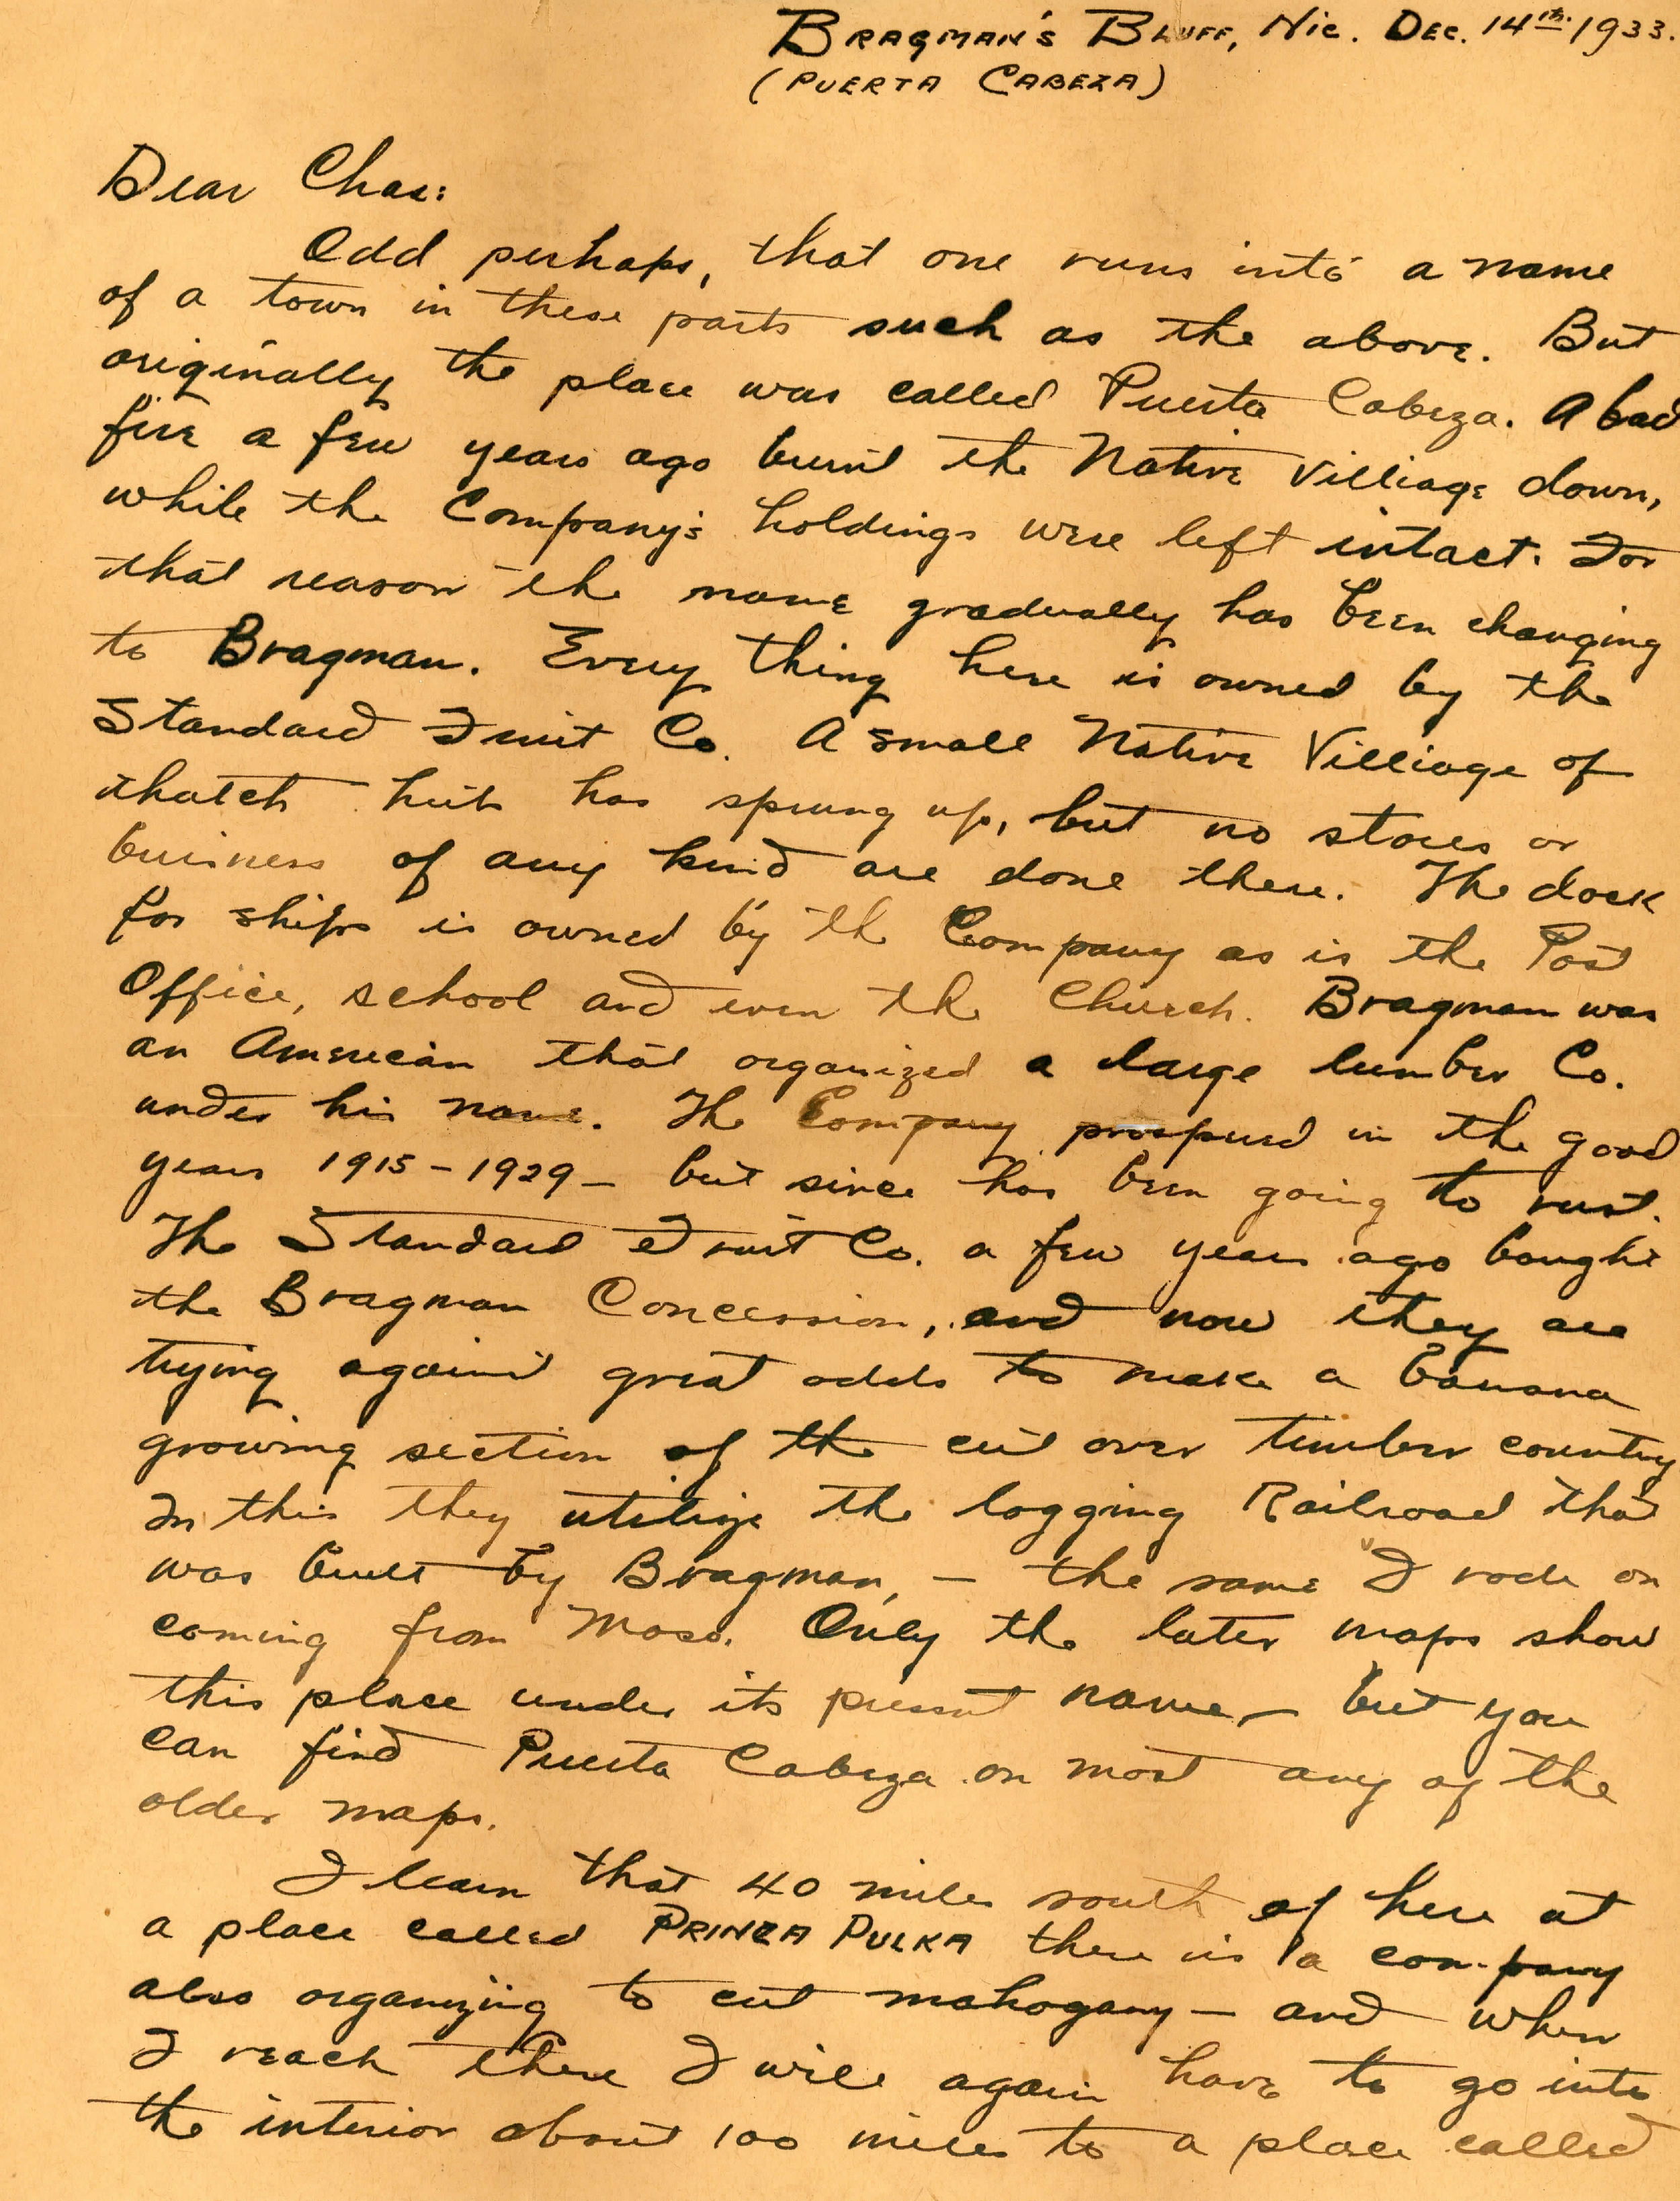 Bragman's Bluff, Nic. Dec. 14th 1933.
(Puerta Cabeza)
Dear Chas:
Odd perhaps, that one runs into a name
of a town in these parts such as the above. But
originally the place was called Puerta Cabeza. A bad
fire a few years ago burnt the Native Villiage down,
while the Company's holdings were left intact. For
that reason the name gradually has been changing
to Bragman. Every thing here is owned by the
Standard Fruit Co. A small Native Villiage of
thatch huts has sprung up, but no stores or
business of any kind are done there. The dock
for ships is owned by the Company as is the Post
Office, school and even the Church. Bragman was
an American that organized a large lumber Co.
under his name. The Company prospered in the good
years 1915-1929 - but since has been going to rust.
The Standard Fruit Co. a few years ago bought
the Bragman Concession, and now they are
trying against great odds to make a banana
growing section of the cut over timber country
In this they utilize the logging Railroad that
was built by Bragman, - the same I rode on
coming from Moss. Only the later maps show
this place under its present name, - but you
can find Puerta Cabeza on most any of the
older maps.
I learn that 40 miles south of here at
a place called Prinza Pulka there is a company
also organizing to cut mahogany - and when
I reach there I will again have to go into
the interior about 100 miles to a place called